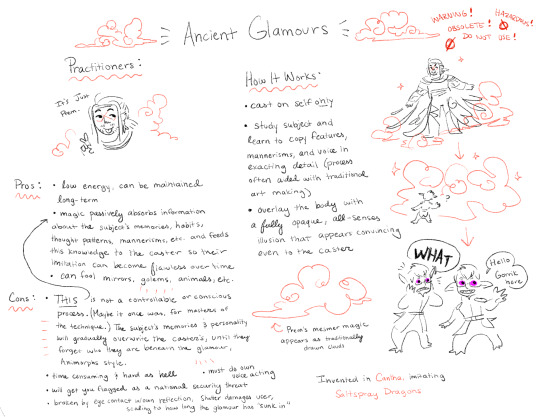 Ancient Glamours
WARNING!
HAZARDOUS!
OBSOLETE!
DO NOT USE!
Practitioners:
It's Just
Prem.
Pros:
• low energy, can be maintained
long-term
• magic passively absorbs information
about the subject's memories, habits,
thought patterns, mannerisms, etc. and feeds
this knowledge to the caster so their
imitation can become flawless over time
• can fool mirrors, golems, animals, etc.
Cons:
• THIS is not a controllable or conscious
process. (Maybe it once was, for masters of
the technique.) The subject's memories & personality
will gradually overwrite the caster's, until they
forget who they are beneath the glamour,
Animorphs style.
• time consuming & hard as hell
• must do own
voice acting
• will get you flagged as a national security threat
• broken by eye contact w/own reflection, shatter damages user,
scaling to how long the glamour has "sunk in"
How It Works:
• cast on self only
• study subject and
learn to copy features,
mannerisms, and voice in
exacting detail (process
often aided with traditional
art making)
• overlay the body with
a fully opaque, all-senses
illusion that appears convincing
even to the caster
Prem's mesmer magic
appears as traditionally
drawn clouds
WHAT
Hello
Gorrik
here
Invented in Cantha, imitating
Saltspray Dragons